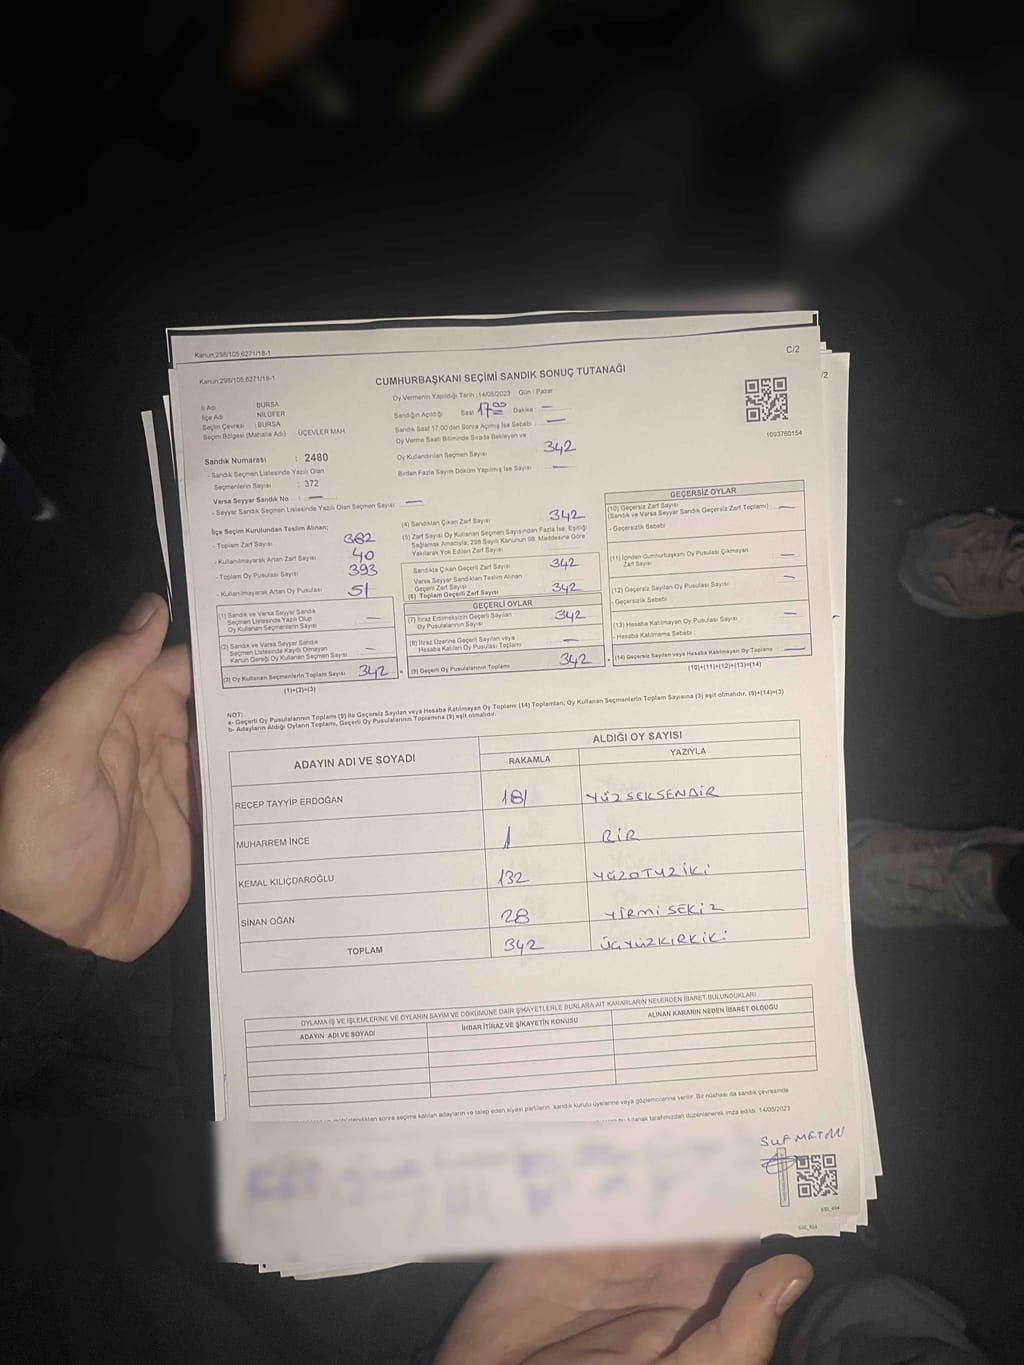 Kanun:298/105;6271/18-1
C/2
Kanun:298/105;6271/18-1
/2
CUMHURBAŞKANI SEÇİMİ SANDIK SONUÇ TUTANAĞI
İl Adı : BURSA
İlçe Adı : NİLÜFER
Seçim Çevresi : BURSA
Seçim Bölgesi (Mahalle Adı) : ÜÇEVLER MAH.
Sandık Numarası : 2480
- Sandık Seçmen Listesinde Yazılı Olan
Seçmenlerin Sayısı : 372
Varsa Seyyar Sandık No : —
- Seyyar Sandık Seçmen Listesinde Yazılı Olan Seçmen Sayısı —
Oy Vermenin Yapıldığı Tarih :14/05/2023 Gün : Pazar
Sandığın Açıldığı Saat 17:00 Dakika —
Sandık Saat 17:00'den Sonra Açılmış İse Sebebi —
Oy Verme Saati Bitiminde Sırada Bekleyen ve
Oy Kullandırılan Seçmen Sayısı 342
Birden Fazla Sayım Döküm Yapılmış İse Sayısı —
1093760154
İlçe Seçim Kurulundan Teslim Alınan;
- Toplam Zarf Sayısı 382
- Kullanılmayarak Artan Zarf Sayısı 40
- Toplam Oy Pusulası Sayısı 393
- Kullanılmayarak Artan Oy Pusulası 51
(1) Sandık ve Varsa Seyyar Sandık
Seçmen Listesinde Yazılı Olup
Oy Kullanan Seçmenlerin Sayısı —
(2) Sandık ve Varsa Seyyar Sandık
Seçmen Listesinde Kayıtlı Olmayan
Kanun Gereği Oy Kullanan Seçmen Sayısı —
(3) Oy Kullanan Seçmenlerin Toplam Sayısı 342 =
(1)+(2)=(3)
(4) Sandıktan Çıkan Zarf Sayısı 342
(5) Zarf Sayısı Oy Kullanan Seçmen Sayısından Fazla İse, Eşitliği
Sağlamak Amacıyla, 298 Sayılı Kanunun 98. Maddesine Göre
Yakılarak Yok Edilen Zarf Sayısı
Sandıkta Çıkan Geçerli Zarf Sayısı 342
Varsa Seyyar Sandıktan Teslim Alınan
Geçerli Zarf Sayısı
(6) Toplam Geçerli Zarf Sayısı 342
GEÇERLİ OYLAR
(7) İtiraz Edilmeksizin Geçerli Sayılan
Oy Pusulalarının Sayısı 342
(8) İtiraz Üzerine Geçerli Sayılan veya
Hesaba Katılan Oy Pusulası Toplamı —
(9) Geçerli Oy Pusulalarının Toplamı 342 +
GEÇERSİZ OYLAR
(10) Geçersiz Zarf Sayısı
(Sandık ve Varsa Seyyar Sandık Geçersiz Zarf Toplamı) —
- Geçersizlik Sebebi :
(11) İçinden Cumhurbaşkanı Oy Pusulası Çıkmayan
Zarf Sayısı —
(12) Geçersiz Sayılan Oy Pusulası Sayısı —
- Geçersizlik Sebebi :
(13) Hesaba Katılmayan Oy Pusulası Sayısı —
- Hesaba Katılmama Sebebi :
(14) Geçersiz Sayılan veya Hesaba Katılmayan Oy Toplamı —
(10)+(11)+(12)+(13)=(14)
NOT:
a- Geçerli Oy Pusulalarının Toplamı (9) ile Geçersiz Sayılan veya Hesaba Katılmayan Oy Toplamı (14) Toplamları, Oy Kullanan Seçmenlerin Toplam Sayısına (3) eşit olmalıdır. (9)+(14)=(3)
b- Adayların Aldığı Oyların Toplamı, Geçerli Oy Pusulalarının Toplamına (9) eşit olmalıdır.
ADAYIN ADI VE SOYADI
ALDIĞI OY SAYISI
RAKAMLA YAZIYLA
RECEP TAYYİP ERDOĞAN 181 YÜZSEKSENBİR
MUHARREM İNCE 1 BİR
KEMAL KILIÇDAROĞLU 132 YÜZOTUZİKİ
SİNAN OĞAN 28 YİRMİSEKİZ
TOPLAM 342 ÜÇYÜZKIRKİKİ
OYLAMA İŞ VE İŞLEMLERİNE VE OYLARIN SAYIM VE DÖKÜMÜNE DAİR ŞİKAYETLERLE BUNLARA AİT KARARLARIN NELERDEN İBARET BULUNDUKLARI
ADAYIN ADI VE SOYADI İHBAR İTİRAZ VE ŞİKAYETİN KONUSU ALINAN KARARIN NEDEN İBARET OLDUĞU
sonra seçime katılan adayların ve talep eden siyasi partilerin sandık kurulu üyelerine veya gözlemcilerine verilir. Bir nüshası da sandık çevresinde
tutanak tarafımızdan düzenlenerek imza edildi. 14/05/2023